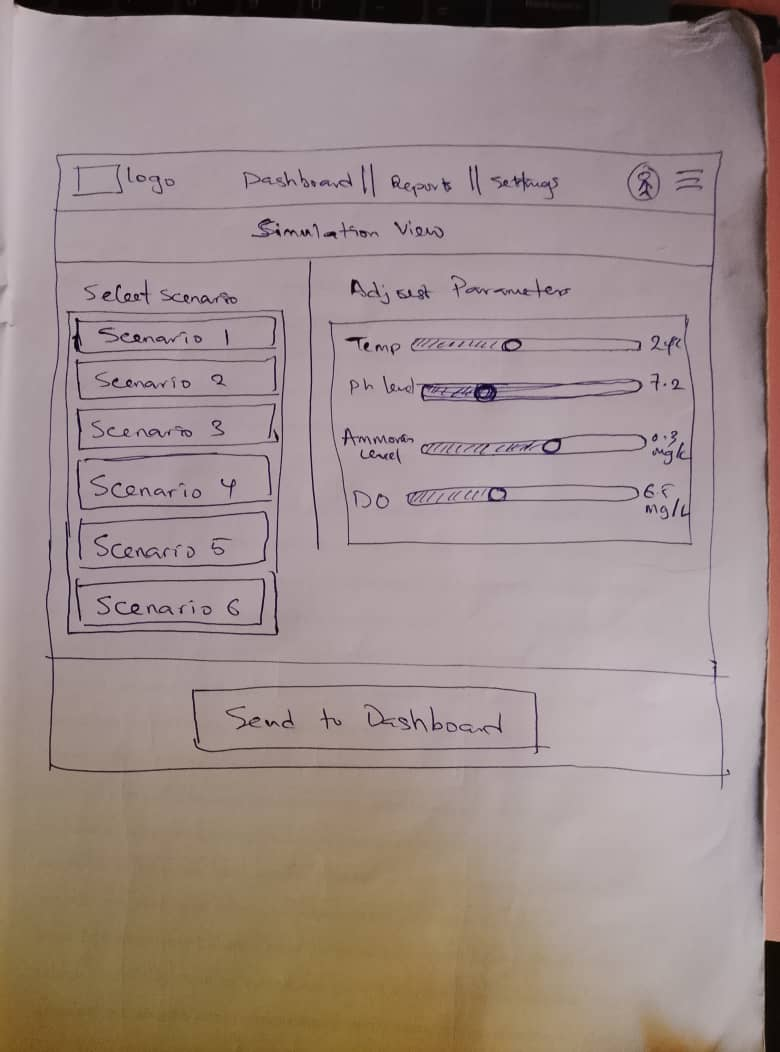 logo Dashboard || Reports || Settings
Simulation View
Select Scenario
Scenario 1
Scenario 2
Scenario 3
Scenario 4
Scenario 5
Scenario 6
Adjust Parameters
Temp
Ph level 7.2
Level mg/L
DO
mg/L
Send to Dashboard